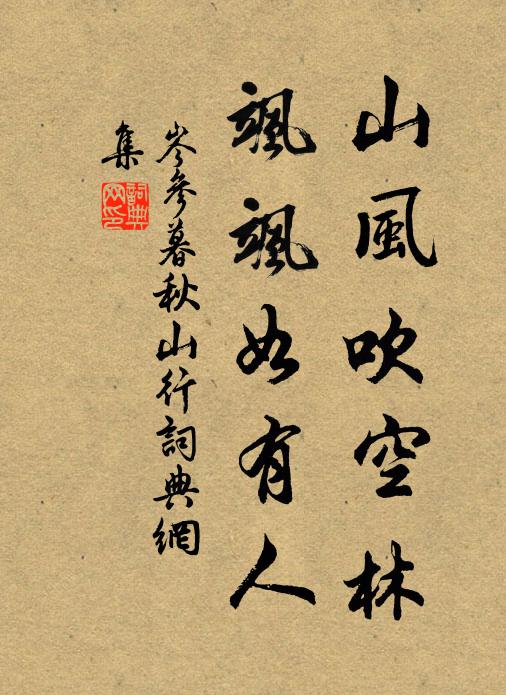 山風吹空林
颯颯如有人
岑參暮秋山行詞典網
集
詞典網印